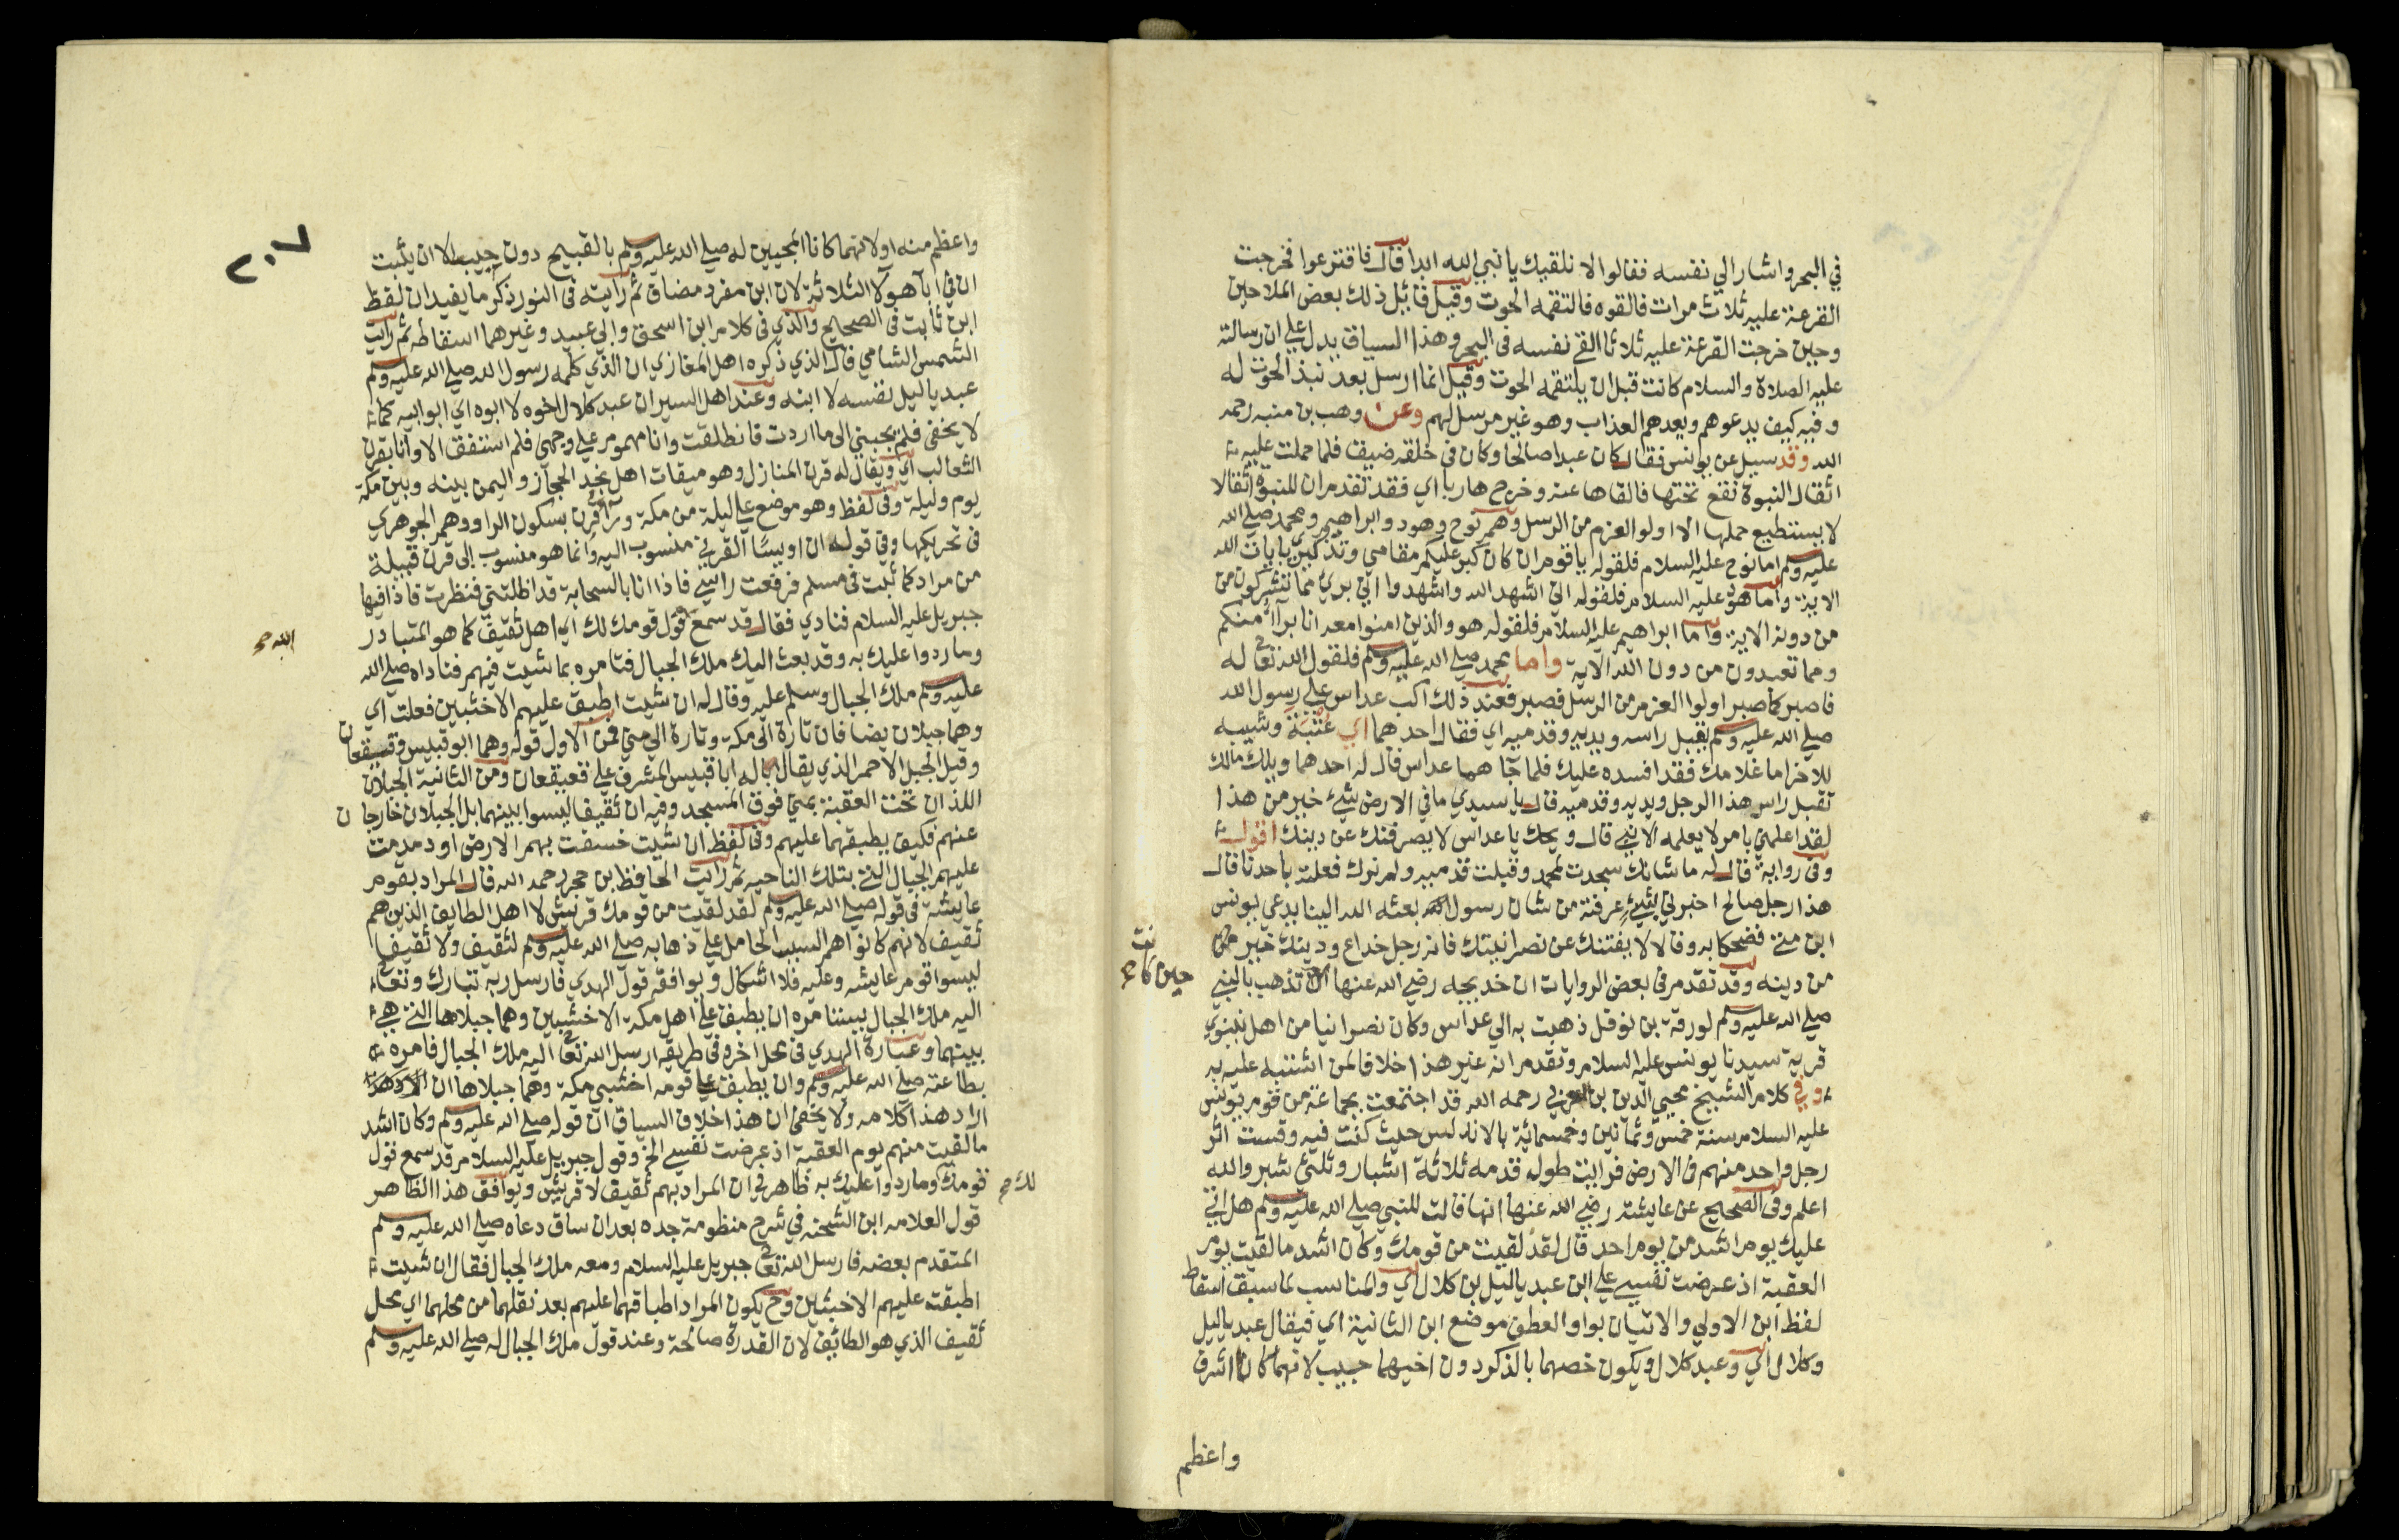 في البحر واشار الي نفسه فقالوا لا نلقيك يا نبي الله ابدا قال فاقترعوا فخرجت
القرعة عليه ثلاث مرات فالقوه فالتقمه الحوت وقيل قائل ذلك بعض الملاحين
وحين خرجت القرعة عليه ثلاثا القي نفسه في البحر وهذا السياق يدل علي ان رسالته
عليه الصلاة والسلام كانت قبل ان يلتقمه الحوت وقيل انما ارسل بعد نبذ الحوت له
وفيه كيف يدعوهم ويعدهم العذاب وهو غير مرسل لهم وعن وهب بن منبه رحمه
الله وقد سيل عن يونس فقال كان عبدا صالحا وكان في خلقه ضيق فلما حملت عليه
اثقال النبوة تفسخ تحتها فالقاها عنه وخرج هاربا اي فقد تقدم ان للنبوة اثقالا
لا يستطيع حملها الا اولوا العزم من الرسل وهم نوح وهود وابراهيم ومحمد صلي الله
عليه وسلم اما نوح عليه السلام فلقوله يا قوم ان كان كبر عليكم مقامي وتذكيري بايات الله
الاية واما هود عليه السلام فلقوله اني اشهد الله واشهدوا اني بري مما تشركون من
من دونه الاية واما ابراهيم عليه السلام فلقوله هو والذين امنوا معه انا برآؤ منكم
ومما تعبدون من دون الله الاية واما محمد صلي الله عليه وسلم فلقول الله تعالى له
فاصبر كما صبر اولوا العزم من الرسل فصبر فعند ذلك اكب عداس علي رسول الله
صلي الله عليه وسلم يقبل راسه ويديه وقدميه اي فقال احدهما اي عتبة وشيبه
للاخر اما غلامك فقد افسده عليك فلما جآهما عداس قال له احدهما ويلك مالك
تقبل راس هذا الرجل ويديه وقدميه قال يا سيدي ما في الارض شيء خير من هذا
لقد اعلمني بامر لا يعلمه الا نبي قال ويحك يا عداس لا يصرفنك عن دينك اقول
وفي رواية قال له ما شانك سجدت لمحمد وقبلت قدميه ولم نرك فعلته باحدنا قال
هذا رجل صالح اخبرني بشيء عرفته من شان رسول بعثه الله الينا يدعي يونس
ابن متي فضحكا به وقالا لا يفتنك عن نصرانيتك فانه رجل خداع ودينك خير
من دينه وقد تقدم في بعض الروايات ان خديجه رضي الله عنها تذهب بالنبي
حين كانت صح
صلي الله عليه وسلم لورقة بن نوفل ذهبت به الي عداس وكان نصرانيا من اهل نينوي
قرية سيدنا يونس عليه السلام وتقدم انه غير هذا خلافا لمن اشتبه عليه به
وفي كلام الشيخ محيي الدين بن العربي رحمه الله قد اجتمعت بجماعة من قوم يونس
عليه السلام سنة خمس وثمانين وخمسمائة بالاندلس حيث كنت فيه وقست اثر
رجل واحد منهم في الارض فرايت طول قدمه ثلاثة اشبار وثلثي شبر والله
اعلم وفي الصحيح عن عايشة رضي الله عنها انها قالت للنبي صلي الله عليه وسلم هل اتي
عليك يوم اشد من يوم احد قال لقد لقيت من قومك وكان اشد ما لقيت يوم
العقبة اذ عرضت نفسي علي ابن عبد ياليل بن كلال اي والمناسب لما سبق اسقاط
لفظ ابن الاولي والاتيان بواو العطف موضع ابن الثانية اي فيقال عبد ياليل
وكلال اي وعبد كلال ويكون خصهما بالذكر دون اخيهما حبيب لانهما كانا اشرف
واعظم
٢٠٧
واعظم منه او لانهما كانا المجيبين له صلي الله عليه وسلم بالقبيح دون حبيب الا ان يثبت
ان في ابآ هولآ الثلاثة لان ابن مفرد مضاف ثم رايته في النور ذكر ما يفيد ان لفظ
ابن ثابت في الصحيح والذي في كلام ابن اسحق وابي عبيد وغيرهما اسقاطه ثم رايت
الشمس الشامي قال الذي ذكره اهل المغازي ان الذي كلمه رسول الله صلي الله عليه وسلم
عبد ياليل نفسه لا ابنه وعند اهل السير ان عبد كلال اخوه لا ابوه اي ابو ابيه كما
لا يخفى فلم يجبني الى ما اردت فانطلقت وانا مهموم علي وجهي فلم استفق الا وانا بقرن
الثعالب اي ويقال له قرن المنازل وهو ميقات اهل نجد الحجاز واليمن بينه وبين مكة
يوم وليلة وفي لفظ وهو موضع علي ليلة من مكة وراقرن بسكون الرا ووهم الجوهري
في تحريكها وفي قوله ان اويسا القرني منسوب اليه وانما هو منسوب الى قرن قبيلة
من مراد كما ثبت في مسلم فرفعت راسي فاذا انا بالسحابة قد اظلتني فنظرت فاذا فيها
جبريل عليه السلام فنادي فقال قد سمع قول قومك لك اي اهل ثقيف كما هو المتبادر
الله صح
وما ردوا عليك به وقد بعث اليك ملك الجبال فتامره بما شيت فيهم فناداه صلي الله
عليه وسلم ملك الجبال وسلم عليه وقال له ان شيت اطبق عليهم الاخشبين فعلت اي
وهما جبلان يضافان تارة الى مكة وتارة الي مني فمن الاول قوله وهما ابو قبيس وقعيقعان
وقيل الجبل الاحمر الذي يقابل ابا قبيس المشرف علي قعيقعان ومن الثانية الجبلان
اللذان تحت العقبة بمني فوق المسجد وفيه ان ثقيفا ليسوا بينهما بل الجبلان خارجان
عنهم فكيف يطبقهما عليهم وفي لفظ ان شيت خسفت بهم الارض او دمدمت
عليهم الجبال التي بتلك الناحيه ثم رايت الحافظ بن حجر رحمه الله قال المراد بقوم
عايشة في قوله صلي الله عليه وسلم لقد لقيت من قومك قريش لا اهل الطايف الذين هم
ثقيف لانهم كانوا هم السبب الحامل علي ذهابه صلي الله عليه وسلم لثقيف ولا ثقيفا
ليسوا قوم عايشه وعليه فلا اشكال ويوافقه قول الهدي فارسل ربه تبارك وتعالى
اليه ملك الجبال يستامره ان يطبق علي اهل مكة الاخشبين وهما جبلاها التي هي
بينهما وعبارة الهدي في محل اخر في طريقه ارسل الله تعالى اليه ملك الجبال فامره
بطاعته صلي الله عليه وسلم وان يطبق علي قومه اخشبي مكة وهما جبلاها ان
اراد هذا كلامه ولا يخفى ان هذا خلاف السياق اذ قوله صلي الله عليه وسلم وكان اشد
ما لقيت منهم يوم العقبة اذ عرضت نفسي الخ وقول جبريل عليه السلام قد سمع قول
قومك وما ردوا عليك به ظاهر في ان المراد بهم ثقيف لا قريش ويوافق هذا الظاهر
لك صح
قول العلامه ابن الشحنه في شرح منظومة جده بعد ان ساق دعاه صلي الله عليه وسلم
المتقدم بعضه فارسل الله تعالى جبريل عليه السلام ومعه ملك الجبال فقال ان شيت
اطبقت عليهم الاخشبين وح يكون المراد اطباقهما عليهم بعد نقلهما من محلهما اي محل
ثقيف الذي هو الطائف لان القدرة صالحة وعند قول ملك الجبال له صلي الله عليه وسلم